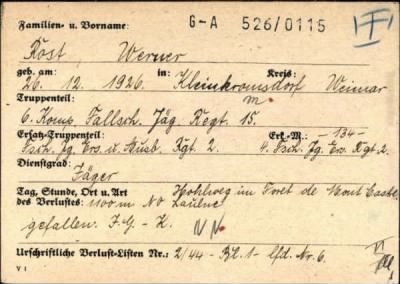 Familien- u. Vorname: G-A 526/0115
Rost, Werner
geb. am: in: Kreis:
26. 12. 1926. Kleinkromsdorf Weimar
Truppenteil: m.
6. Komp. Fallsch. Jäg. Regt. 15.
Ersatz-Truppenteil: Erk.-M.: -134-
Fsch. Jg. Ers. u. Ausb. Rgt. 2. 4. Fsch. Jg. Ers. Rgt. 2
Dienstgrad:
Jäger
Tag, Stunde, Ort u. Art Hohlweg im Foret de Mont Castre
des Verlustes: 1100 m NO Laulne
gefallen. J.G - K. NN
Urschriftliche Verlust-Listen Nr.: 2/44 - Bl. 1 - lfd. Nr. 6.
V 1